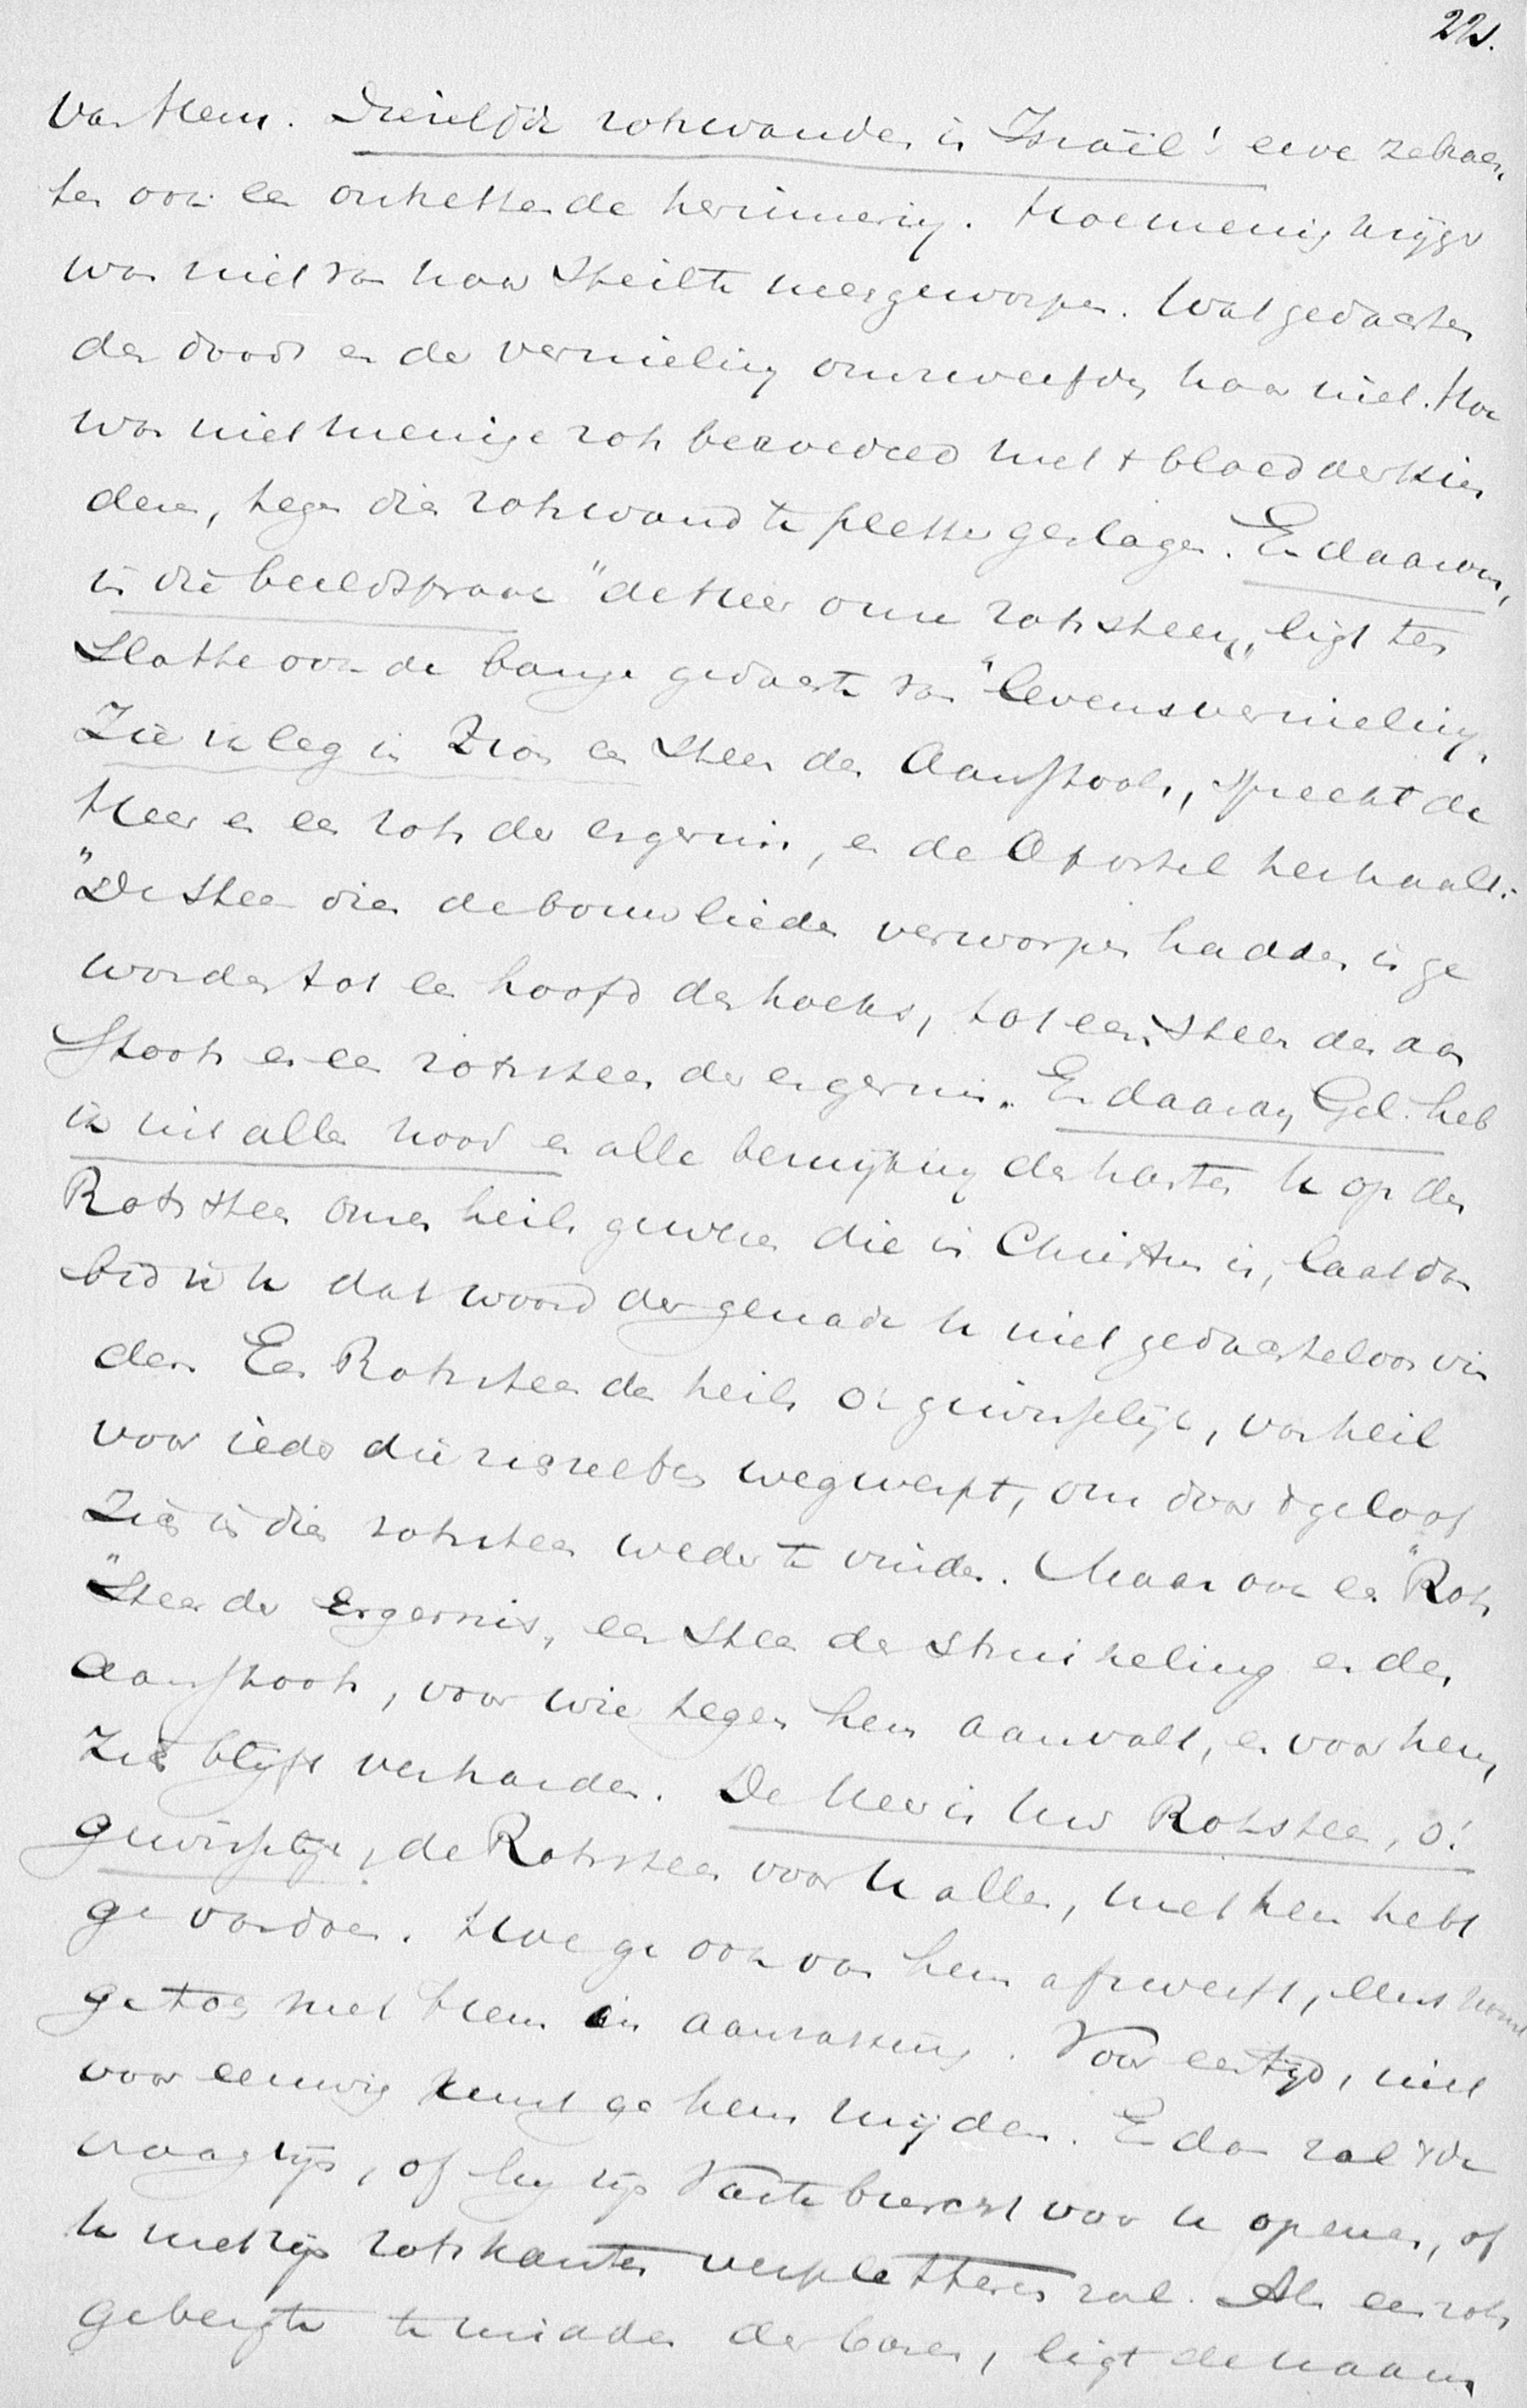 22.
van Hem. Diezelfde rotswanden in Israël! eene zekeren,
ten ook een ontzettende herinnering. Hoe menig krijger
was niet van haar steilte neergeworpen. Wat gedachten
der dood en der vernieling omzweefden haar niet. Hoe
was niet menige rots bezoedeld met 't bloed der kin
deren, tegen die rotswand te pletter geslagen. En daarom,
in die beeldspraak "de Heer onze rotssteen" ligt ten
slotte ook de bange gedachte van "levensvernieling".
Zie ik leg in Zion een steen des aanstoots, spreekt de
Heer en een rots der ergernis, en de Apostel herhaalt:
"De steen dien de bouwlieden verworpen hadden is ge
worden tot een hoofd des hoeks, tot een steen des aan
stoots en een rotssteen der ergernis". En daarom, Gel. heb
ik uit allen nood en alle benijpinging des harten U op den
Rotssteen onzes heils gewezen die in Christus is, laat dan
bid ik U dat woord der genade U niet gedachteloos vin
den. Een Rotssteen des heils o gewisselijk, van heil
voor ieder die zichzelven wegwerpt, om door 't geloof
zich in dien rotssteen weder te vinden. Maar ook een "Rots
steen der Ergernis", een steen der struikeling en des
aanstoots, voor wie tegen hem aanvalt, en voor hem
zich blijft verharden. De Heer is Uw Rotssteen, o!
gewisselijk, de Rotssteen voor U allen, met hem hebt
ge van doen. Hoe ge ook van hem afzwerft, eens komt
ge toch met Hem in aanraking. Voor een tijd, niet
voor eeuwig kunt ge hem mijden. En dan zal 't de
vraag zijn, of hij zijn Vaste burcht voor U openen, of
U met zijn rotskanten verpletteren zal. Als een rots
gebergte te midden der baren, ligt de naam